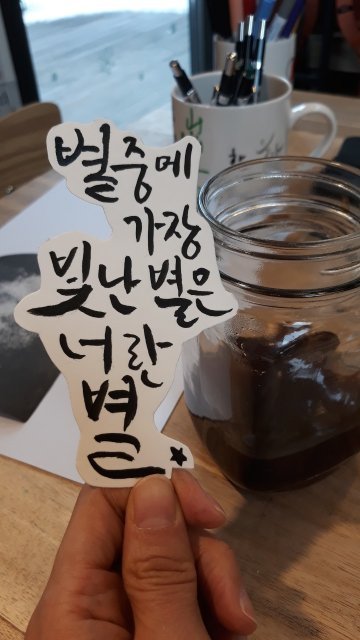 별중메
가장
빛난 별은
너란
별